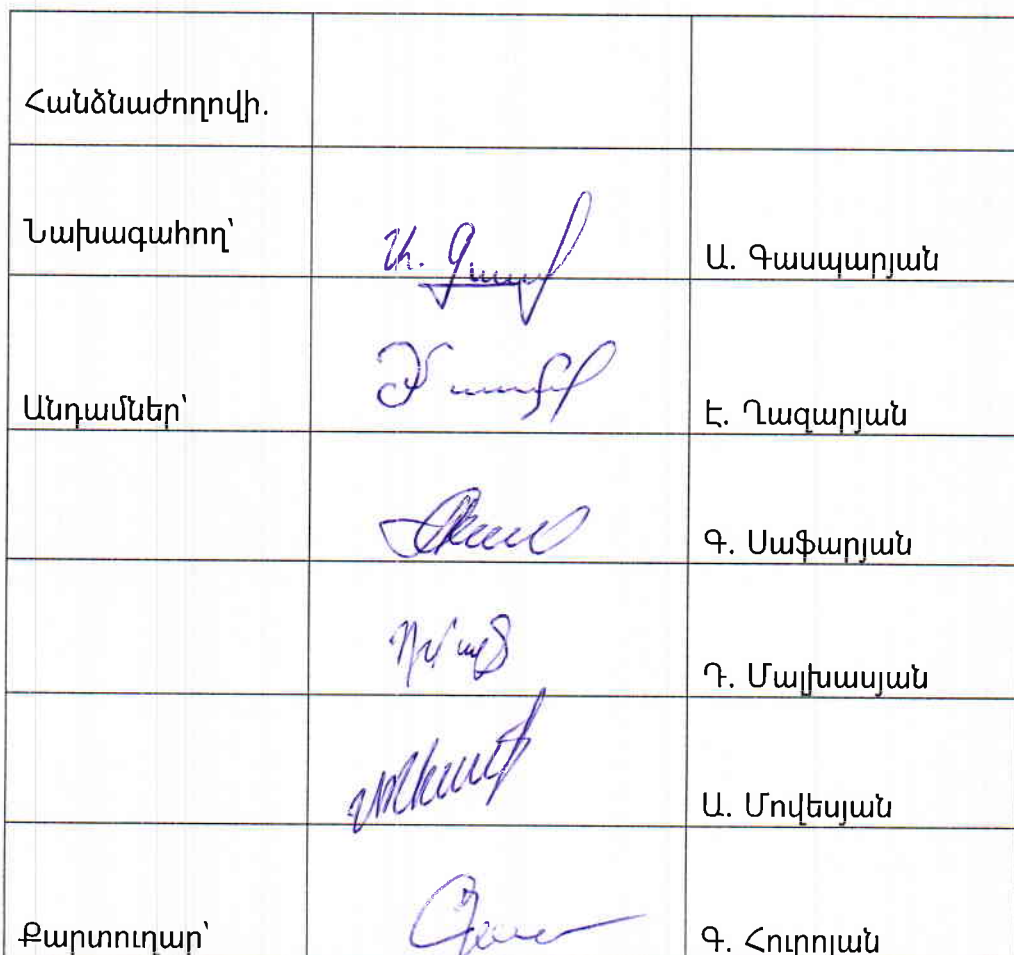 Հանձնաժողովի.
Նախագահող՝ Ա. Գասպարյան
Անդամներ՝ Է. Ղազարյան
Գ. Սաֆարյան
Դ. Մալխասյան
Ա. Մովեսյան
Քարտուղար՝ Գ. Հուրոյան